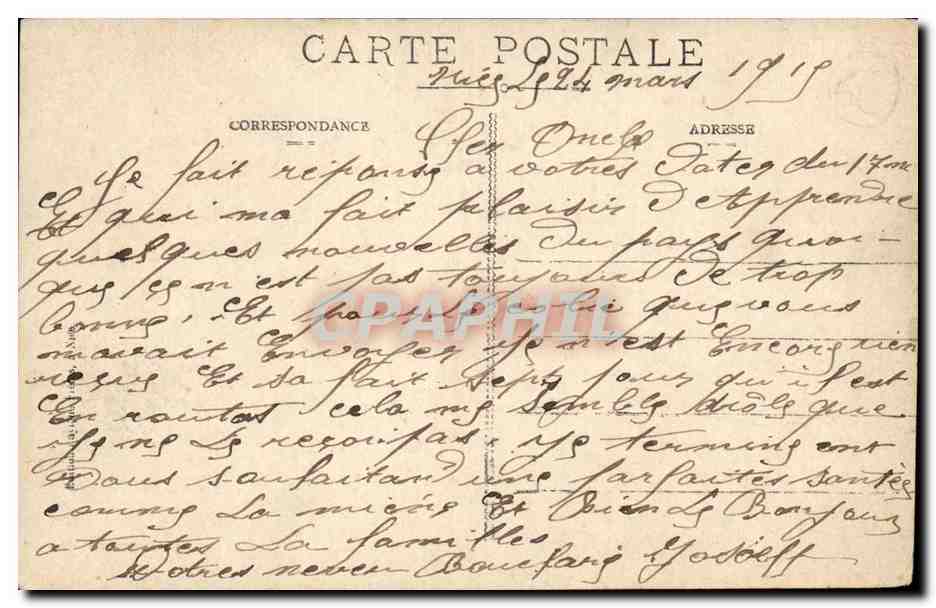 CARTE POSTALE
24 mars 1915
CORRESPONDANCE
ADRESSE
Cher Oncle
Je fait réponse a votres dater du 17 m
Et qui ma fait plaisir d'Apprendre
quelques nouvelles du pays quoi-
que ce n'est pas toujours de trop
bonne, Et pour le colie que vous
mavait Envoyer je n'est Encore rien
reçue Et sa fait sept jour qu'il est
En routas cela me semble drôle que
je ne le reçoi pas, je termine ent
Vous souhaitand une parfaites santée
comme la miene Et bien le Bonjour
a toutes la familles
Votres neveu Joseff
CPAPHIL